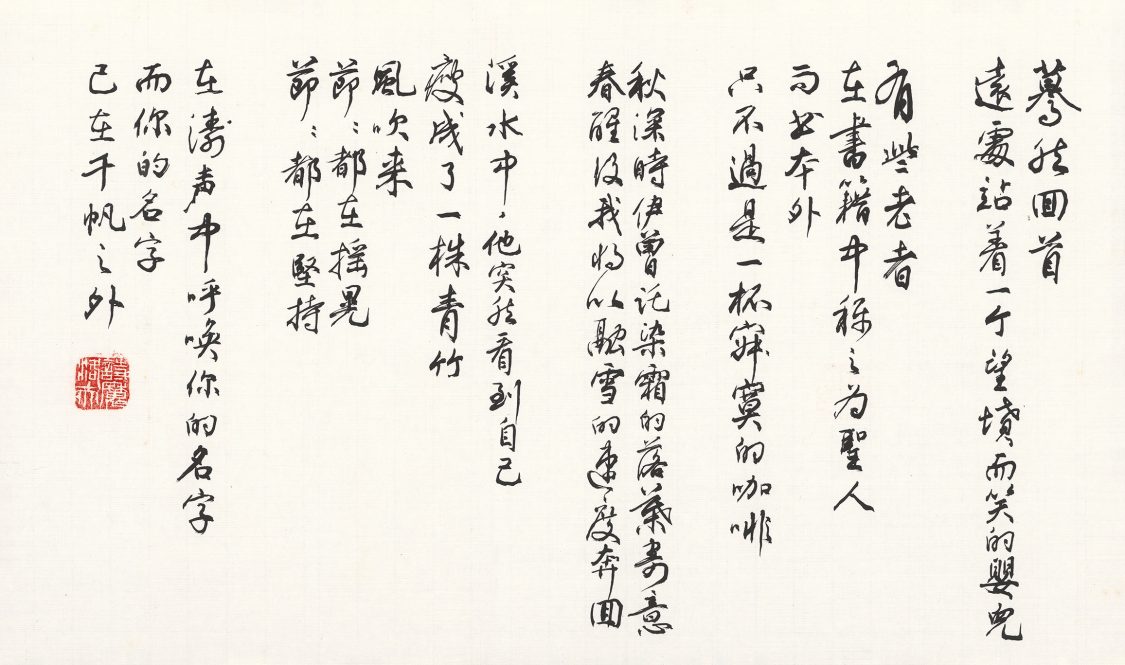 驀然回首
遠處站着一个望墳而笑的嬰兒
有些老者
在書籍中稱之為聖人
而書本外
只不過是一杯寂寞的咖啡
秋深時伊曾託染霜的落葉寄意
春醒後我將以融雪的速度奔回
溪水中,他突然看到自己
瘦成了一株青竹
風吹来
節節都在搖晃
節節都在堅持
在濤声中呼喚你的名字
而你的名字
已在千帆之外